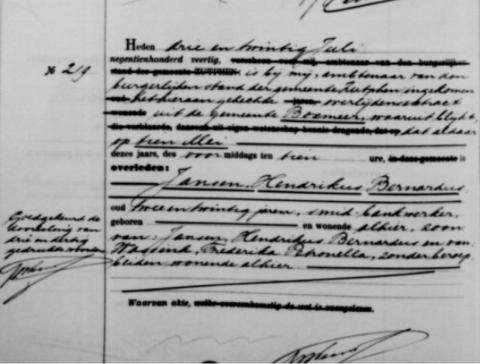 Heden drie en twintig Juli
negentienhonderd veertig, verscheen voor mij, ambtenaar van den burgerlijken
stand der gemeente ZUTPHEN is by mij, ambtenaar van den
No 219
burgerlijken stand der gemeente Zutphen ingekomen
het hieraan gehechte overlijdensextract
uit de gemeente Boxmeer, waaruit blijkt,
die verklaarde, daarvan uit eigen wetenschap kennis dragende, dat op dat aldaar
op tien Mei
dezes jaars, des voor middags ten tien ure, in deze gemeente is
overleden:
Jansen, Hendrikus Bernardus,
oud twee en twintig jaren, smid-bankwerker,
geboren en wonende alhier, zoon
van: Jansen, Hendrikus Bernardus en van:
Frederika Petronella, zonder beroep
beiden wonende alhier.
Goedgekeurd de
doorhaling van
drie en dertig
gedrukte woorden
Waarvan akte, welke overeenkomstig de wet is voorgelezen.